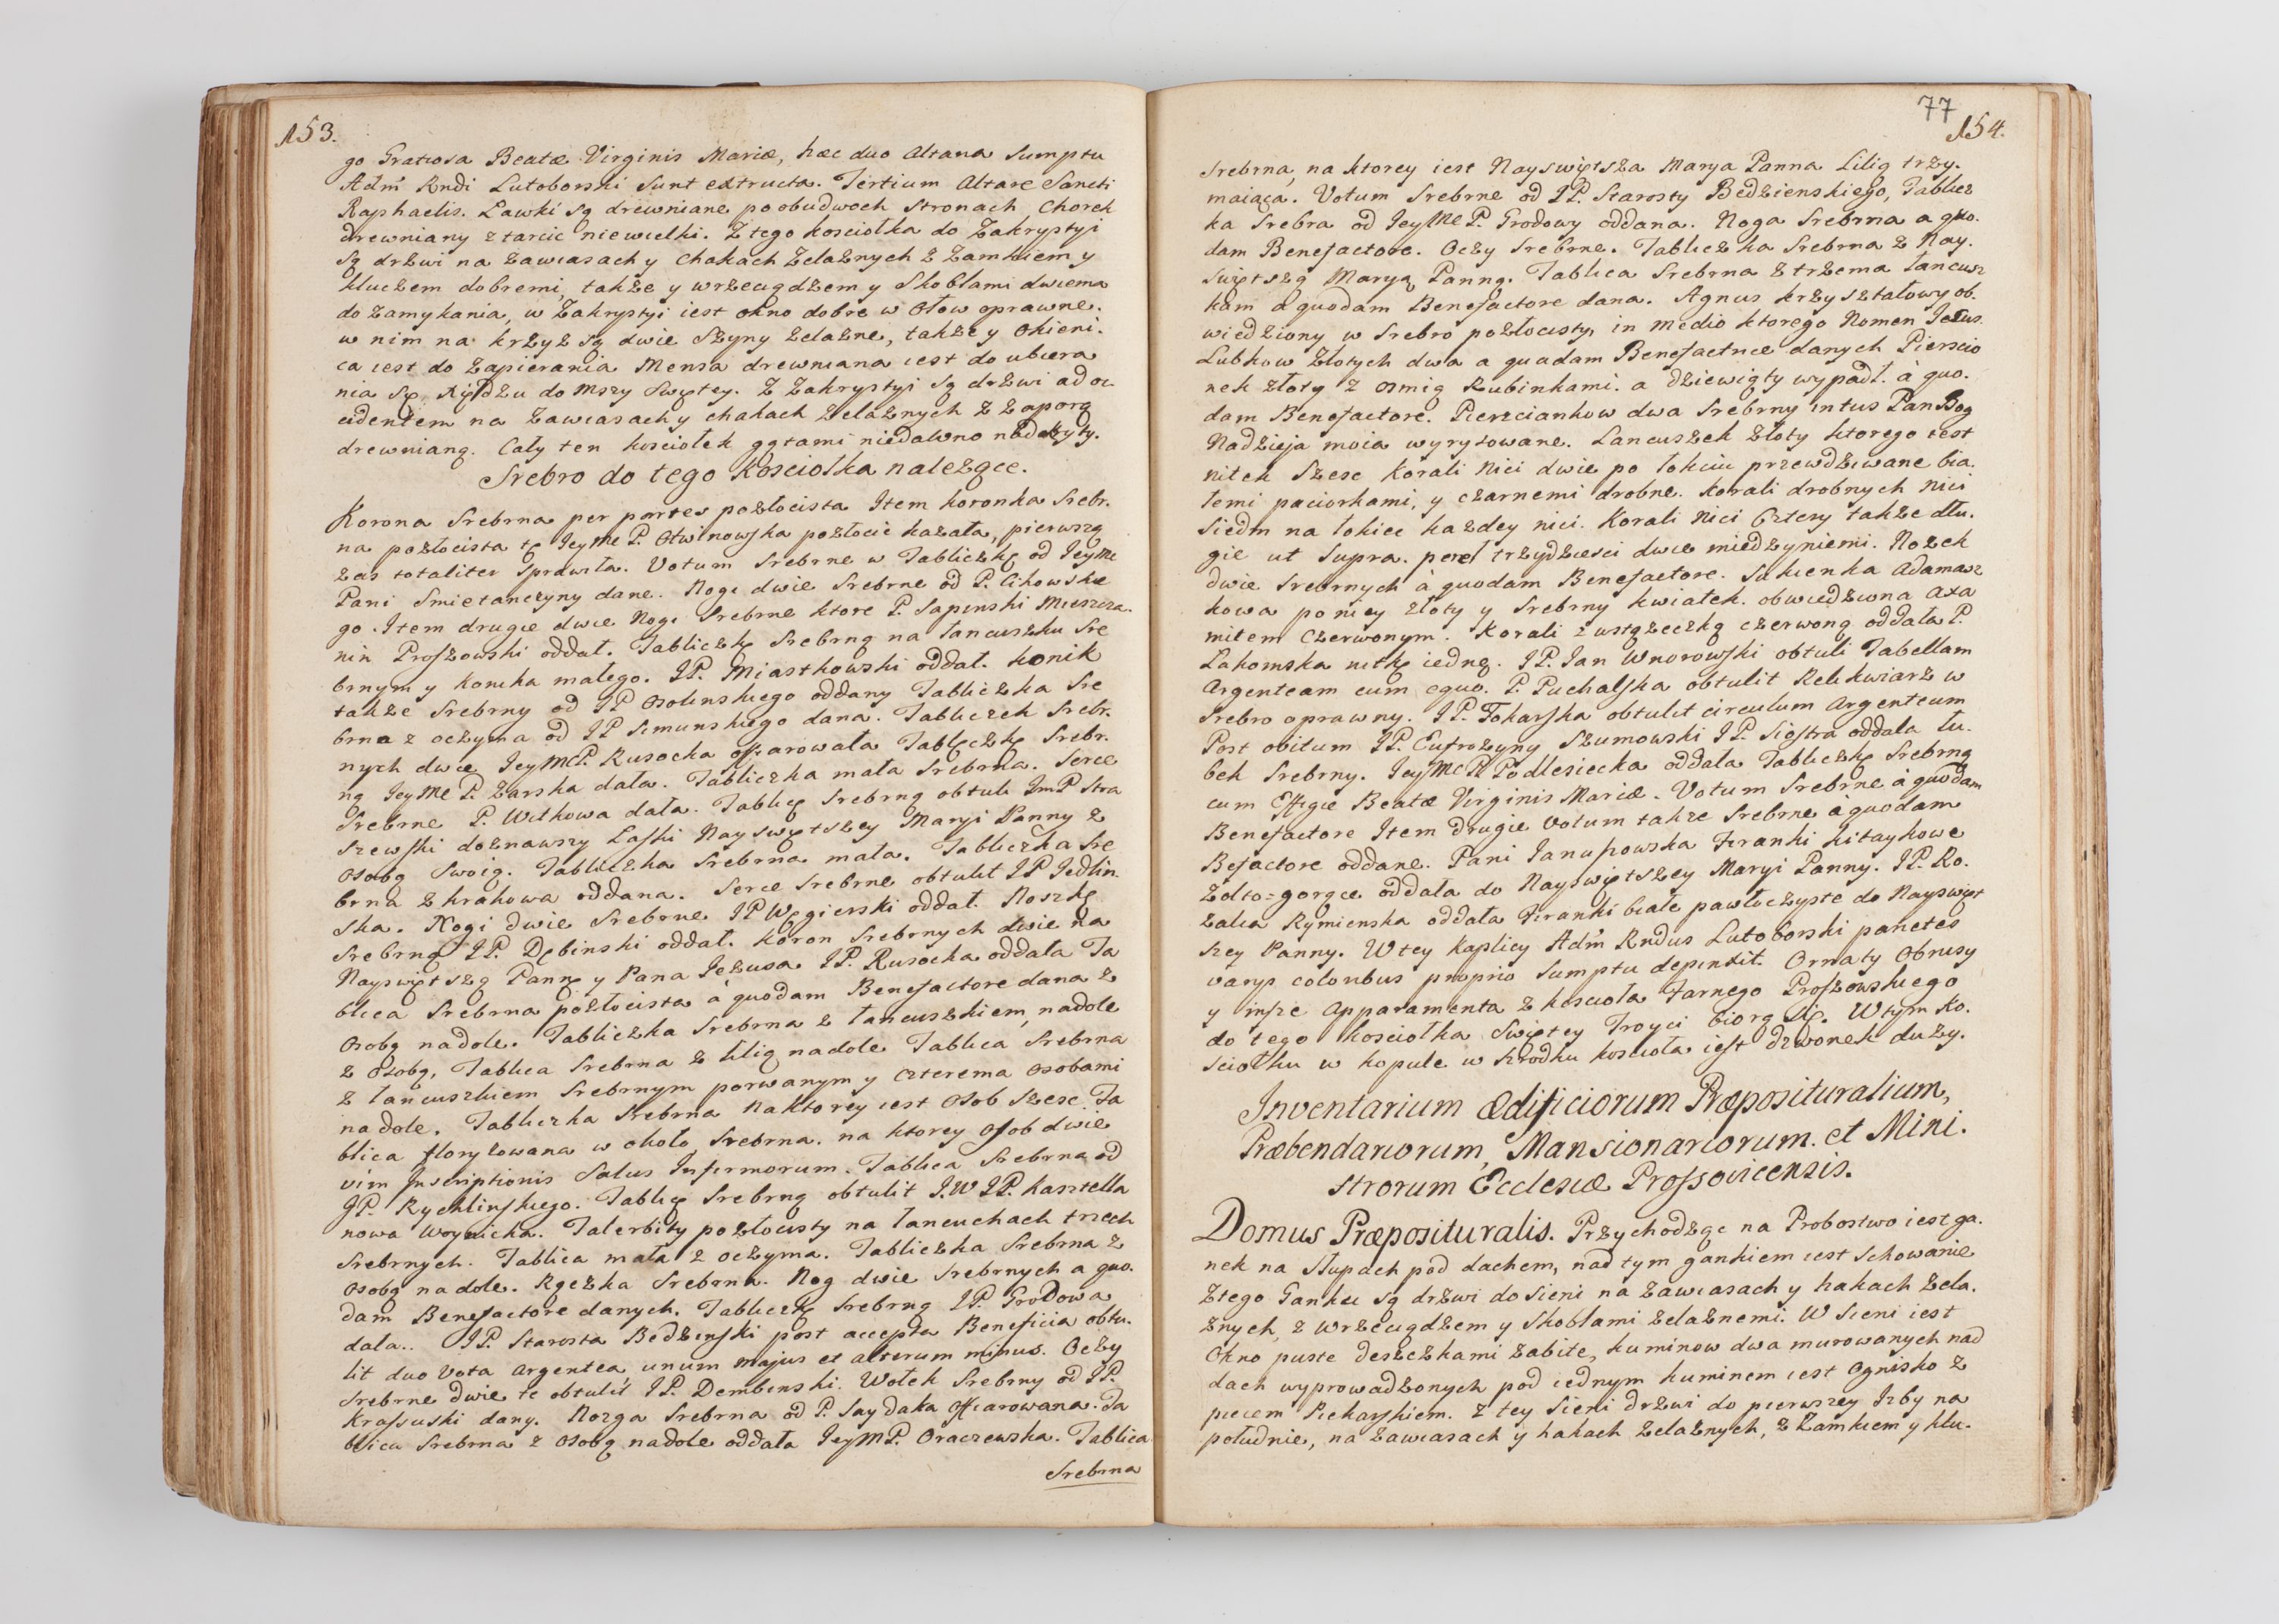 153.
go Gratiosa Beatæ Virginis Mariæ, hæc duo Altaria Sumptu
Adm Rndi Lutoborski Sunt extructa. Tertium Altare Sancti
Raphaelis. Ławki są drewniane po obudwoch Stronach Chorek
drewniany z tarcic niewielki. Z tego kosciołka do Zakrystyi
Są drzwi na zawiasach y Chakach Zelaznych z Zamkiem y
kluczem dobremi, także y wrzeciądzem y Skoblami dwiema
do Zamykania, w Zakrystyi iest okno dobre w Ołow oprawne.
w nim na krzyż są dwie Szyny zelazne, także y Okieni-
ca iest do zapierania Mensa drewniana iest do ubiera
nia Się Xiędzu do Mszy Swiętey. Z Zakrystyi są drzwi ad oc
cidentem na zawiasach y chakach zelaznych z zaporą
drewnianą. Cały ten kosciołek gątami niedawno nadkryty.
Srebro do tego Kosciołka nalezące.
Korona Srebrna per partes pozłocista Item koronka Srebr.
na pozłocista tę JeyMc P. Otwinowska pozłocić kazała, pierwszą
zas totaliter Sprawiła. Votum Srebrne w Tabliczkę od JeyMc
Pani Smietanczyny dane. Nogi dwie Srebrne od P. Cikowskie
go. Item drugie dwie Nogi Srebrne ktore P. Sapinski Mieszcza.
nin Proszowski oddał. Tabliczkę Srebrną na łancuszku Sre
brnym y Konika małego. JP. Miastkowski oddał. Konik
także Srebrny od JP Osolinskiego oddany Tabliczka Sre
brna z oczyma od JP Simunskiego dana. Tabliczek Srebr.
nych dwie JeyMcP. Rusocka offiarowała Tabliczkę Srebr.
ną JeyMc P. Zarska dała. Tabliczka mała Srebrna. Serce
Srebrne P. Witkowa dała. Tablicę Srebrną obtuli ImP Stra
szewski doznawszy Łaski Nayswiętszey Maryi Panny z
Osobą Swoią. Tabliczka Srebrna mała. Tabliczka Sre
brna z krakowa oddana. Serce Srebrne obtulit JP Jedlin.
ska. Nogi dwie Srebrne JP Węgierski oddał. Noszkę
Srebrną JP. Dębinski oddał. Koron Srebrnych dwie na
Nayswiętszą Pannę y Pana Jezusa JP. Rusocka oddała Ta
blica Srebrna pozłocista à quodam Benefactore dana z
Osobą nadole. Tabliczka Srebrna z łancuszkiem, nadole
z Osobą. Tablica Srebrna z lilią nadole Tablica Srebrna
z łancuszkiem Srebrnym porwanym y czterema Osobami
nadole. Tabliczka Srebrna na ktorey iest Osob Szesc. Ta
blica florysowana w około Srebrna. na ktorey Osob dwie
vim Inscriptionis Salus Infirmorum. Tablica Srebrna od
JP. Rychlinskiego. Tablicę Srebrną obtulit J.W JP. Kasztella
nowa Woynicka. Talerbity pozłocisty na łancuchach trzech
Srebrnych. Tablica mała z oczyma. Tabliczka Srebrna z
Osobą nadole. Rączka Srebrna. Nog dwie Srebrnych a quo.
dam Benefactore danych. Tabliczkę Srebrną JP. Grodowa
dała.. JP. Starosta Bedzinski post accepta Beneficia obtu.
lit duo Vota argentea, unum majus et alterum minus. Oczy
Srebrne dwie te obtulit JP. Dembinski. Wołek Srebrny od JP.
Krassuski dany. Nozga Srebrna od P. Saydaka offiarowana. Ta
blica Srebrna z Osobą nadole oddała JeyMP. Oraczewska. Tablica
Srebrna
77
154.
Srebrna, na ktorey iest Nayswiętsza Marya Panna Lilią trzy.
maiąca. Votum Srebrne od JP. Starosty Bedzienskiego, Tablicz
ka Srebra od JeyMc P. Grodowy oddana. Noga Srebrna a quo.
dam Benefactore. Oczy Srebrne. Tabliczka Srebrna z Nay.
Swiętszą Maryą Panną. Tablica Srebrna z trzema łancusz
kam a quodam Benefactore dana. Agnus krzyształowy ob.
wiedziony w Srebro pozłocisty, in medio ktorego Nomen Jesus.
Lubkow złotych dwa a quadam Benefactrice danych Pierscio
nek złoty z osmią Rubinkami. a dziewiąty wypadł. a quo.
dam Benefactore. Pierscionkow dwa Srebrny intus Pan Bog
Nadzieja moia wyrysowane. Lancuszek złoty ktorego iest
nitek Szesc Korali nici dwie po łokciu przewdziwane bia.
łemi paciorkami, y czarnemi drobne. Korali drobnych nici
Siedm na łokiec kazdey nici. Korali Nici Cztery także dłu.
gie ut Supra. pereł trzydziesci dwie miedzyniemi. Nozek
dwie Srebrnych à quodam Benefactore. Sukienka Adamasz
kowa po niey złoty y Srebrny kwiatek. obwiedziona Axa
mitem Czerwonym. Korali z wstązeczką czerwoną oddała P.
Lakomska nitkę iedną. JP. Jan Wnorowski obtuli Tabellam
Argenteam cum equo. P. Puchalska obtulit Relikwiarz w
Srebro oprawny. JP. Tokarska obtulit circulum Argenteum
Post obitum JP. Eufrozyny Szumowski JP. Siostra oddała Łu.
bek Srebrny. JeyMc P. Podlesiecka oddała Tabliczkę Srebrną
cum Effigie Beatæ Virginis Mariæ. Votum Srebrne à quodam
Benefactore Item drugie Votum także Srebrne à quodam
Befactore oddane. Pani Janupowska Firanki kitaykowe
Zołto=gorące oddała do Nayswiętszey Maryi Panny. JP. Ro.
zalia Rymienska oddała Firanki białe pawłoczyste do Nayswięt
szey Panny. W tey Kaplicy Adm Rndus Lutoborski parietes
varys coloribus proprio Sumptu depinxit. Ornaty Obrusy
y insze Apparamenta z koscioła Farnego Proszowskiego
do tego kosciołka Swiętey Troyci biorą się. W tym Ko.
sciołku w kopule w srodku koscioła iest dzwonek duzy.
Inventarium Ædificiorum Præposituralium,
Præbendariorum, Mansionariorum. et Mini.
strorum Ecclesiæ Prossovicensis.
Domus Præposituralis. Przychodząc na Probostwo iest ga.
nek na Słupach pod dachem, nad tym gankiem iest Schowanie
Ztego Ganku są drzwi do sieni na zawiasach y hakach zela.
znych, z wrzeciądzem y Skoblami zelaznemi. W Sieni iest
Okno puste deszczkami zabite, kuminow dwa murowanych nad
dach wyprowadzonych pod iednym kuminem iest Ognisko z
piecem Piekarskiem. z tey Sieni drzwi do pierwszey Izby na
południe, na zawiasach y hakach zelaznych, z Zamkiem y klu-